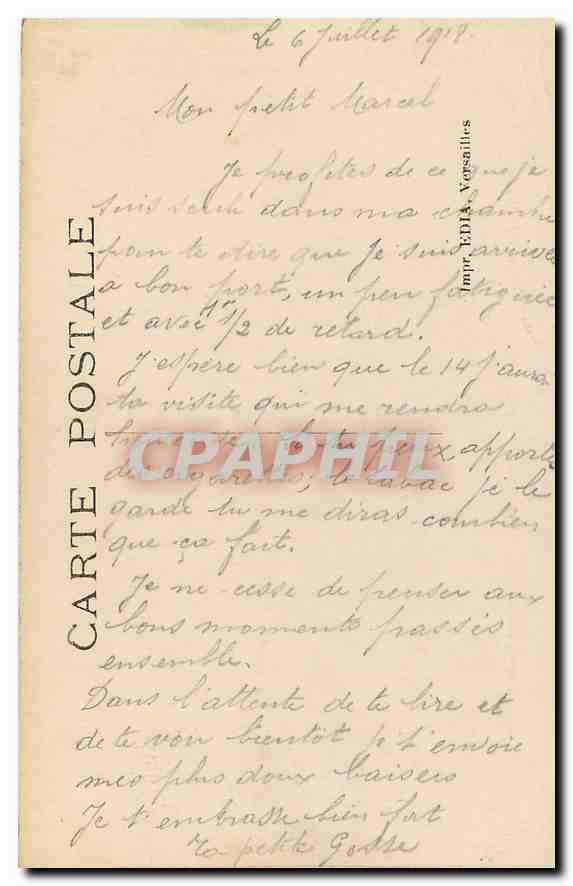 Le 6 Juillet 1918.
Mon petit Marcel
Je profites de ce que je
suis seule dans ma chambre
pour te dire que je suis arrivée
a bon port, un peu fatiguée
et avec 1h 1/2 de retard.
J'espère bien que le 14 j'aurai
ta visite qui me rendra
si tu peux apporte
des cigarettes, le tabac je le
garde tu me diras combien
que ça fait.
Je ne cesse de penser aux
bons moments passés
ensemble.
Dans l'attente de te lire et
de te voir bientôt je t'envoie
mes plus doux baisers
Je t'embrasse bien fort
Ta petite Gosse
CARTE POSTALE
Impr. EDIA, Versailles
CPAPHIL